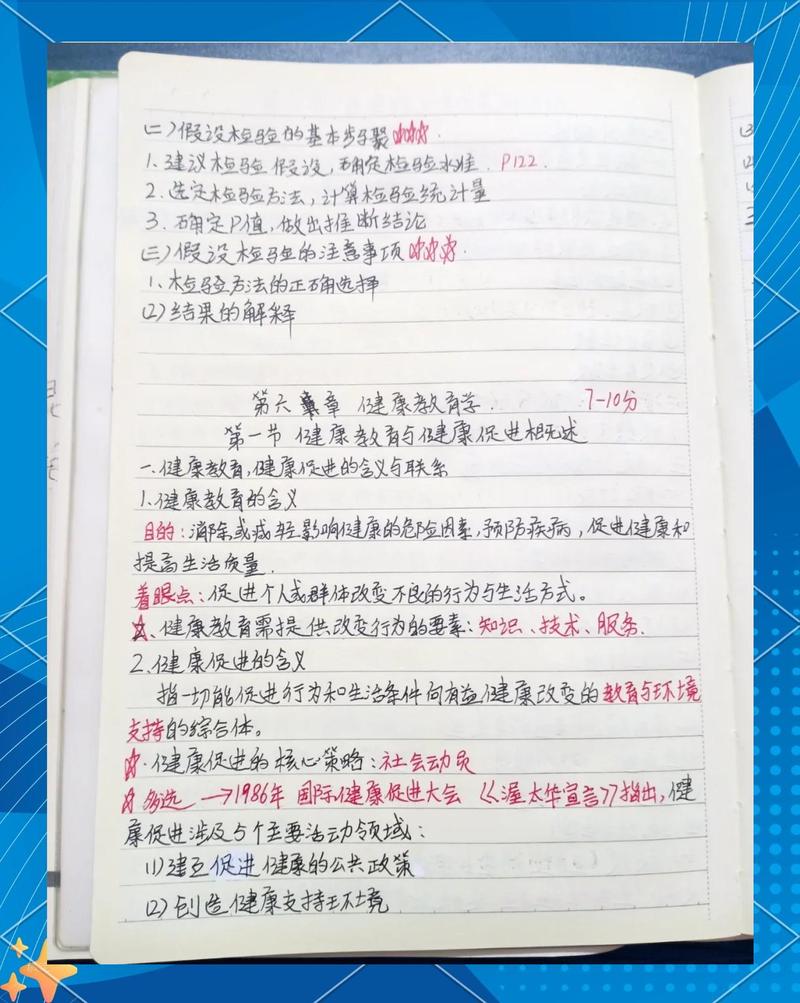 (二)假设检验的基本步骤☆☆☆.
1.建议检验假设,确定检验水准. P122.
2.选定检验方法,计算检验统计量
3.确定P值,做出推断结论
(三)假设检验的注意事项☆☆☆.
1.检验方法的正确选择
(2)结果的解释
第六章 健康教育学. 7-10分
第一节 健康教育与健康促进概述
一.健康教育,健康促进的含义与联系
1.健康教育的含义
目的:消除或减轻影响健康的危险因素,预防疾病,促进健康和
提高生活质量.
着眼点:促进个人或群体改变不良的行为与生活方式。
☆、健康教育需提供改变行为的要素:知识、技术、服务.
2.健康促进的含义
指一切能促进行为和生活条件向有益健康改变的教育与环境
支持的综合体。
☆.健康促进的核心策略:社会动员
☆多选→1986年 国际健康促进大会《渥太华宣言》指出,健
康促进涉及5个主要活动领域:
(1)建立促进健康的公共政策
(2)创造健康支持环境